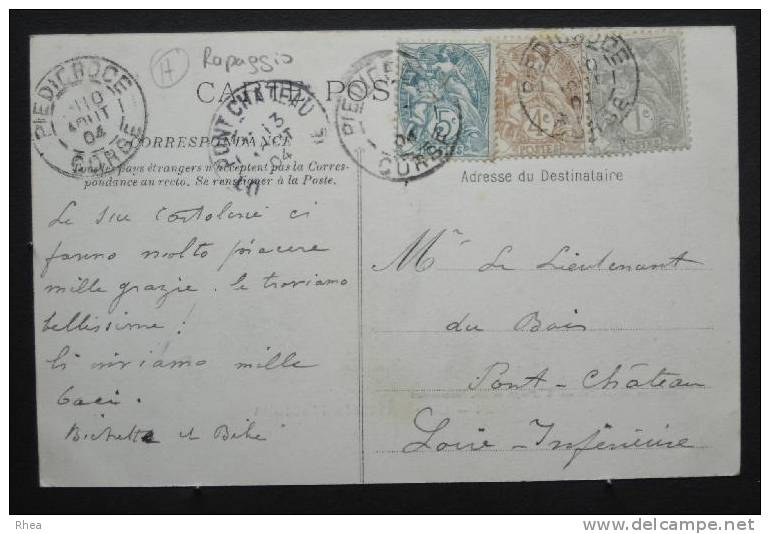 Rapaggio
H
CARTE POS
PIEDICROCE
10
AOUT
04
CORSE
PONTCHATEAU
13
04
PIEDICROCE
04
CORSE
PIEDICROCE
CORSE
5c
4c
POSTES
1c
POSTES
CORRESPONDANCE
Tous les pays étrangers n'acceptent pas la Corres-
pondance au recto. Se renseigner à la Poste.
Adresse du Destinataire
Le sue cartoline ci
fanno molto piacere
mille grazie. le troviamo
bellissime!
Gi inviamo mille
baci.
Bichette et Bébé
Mr Le Lieutenant
du Bois
Pont-Château
Loire-Inférieure
Rhea
www.delcampe.net